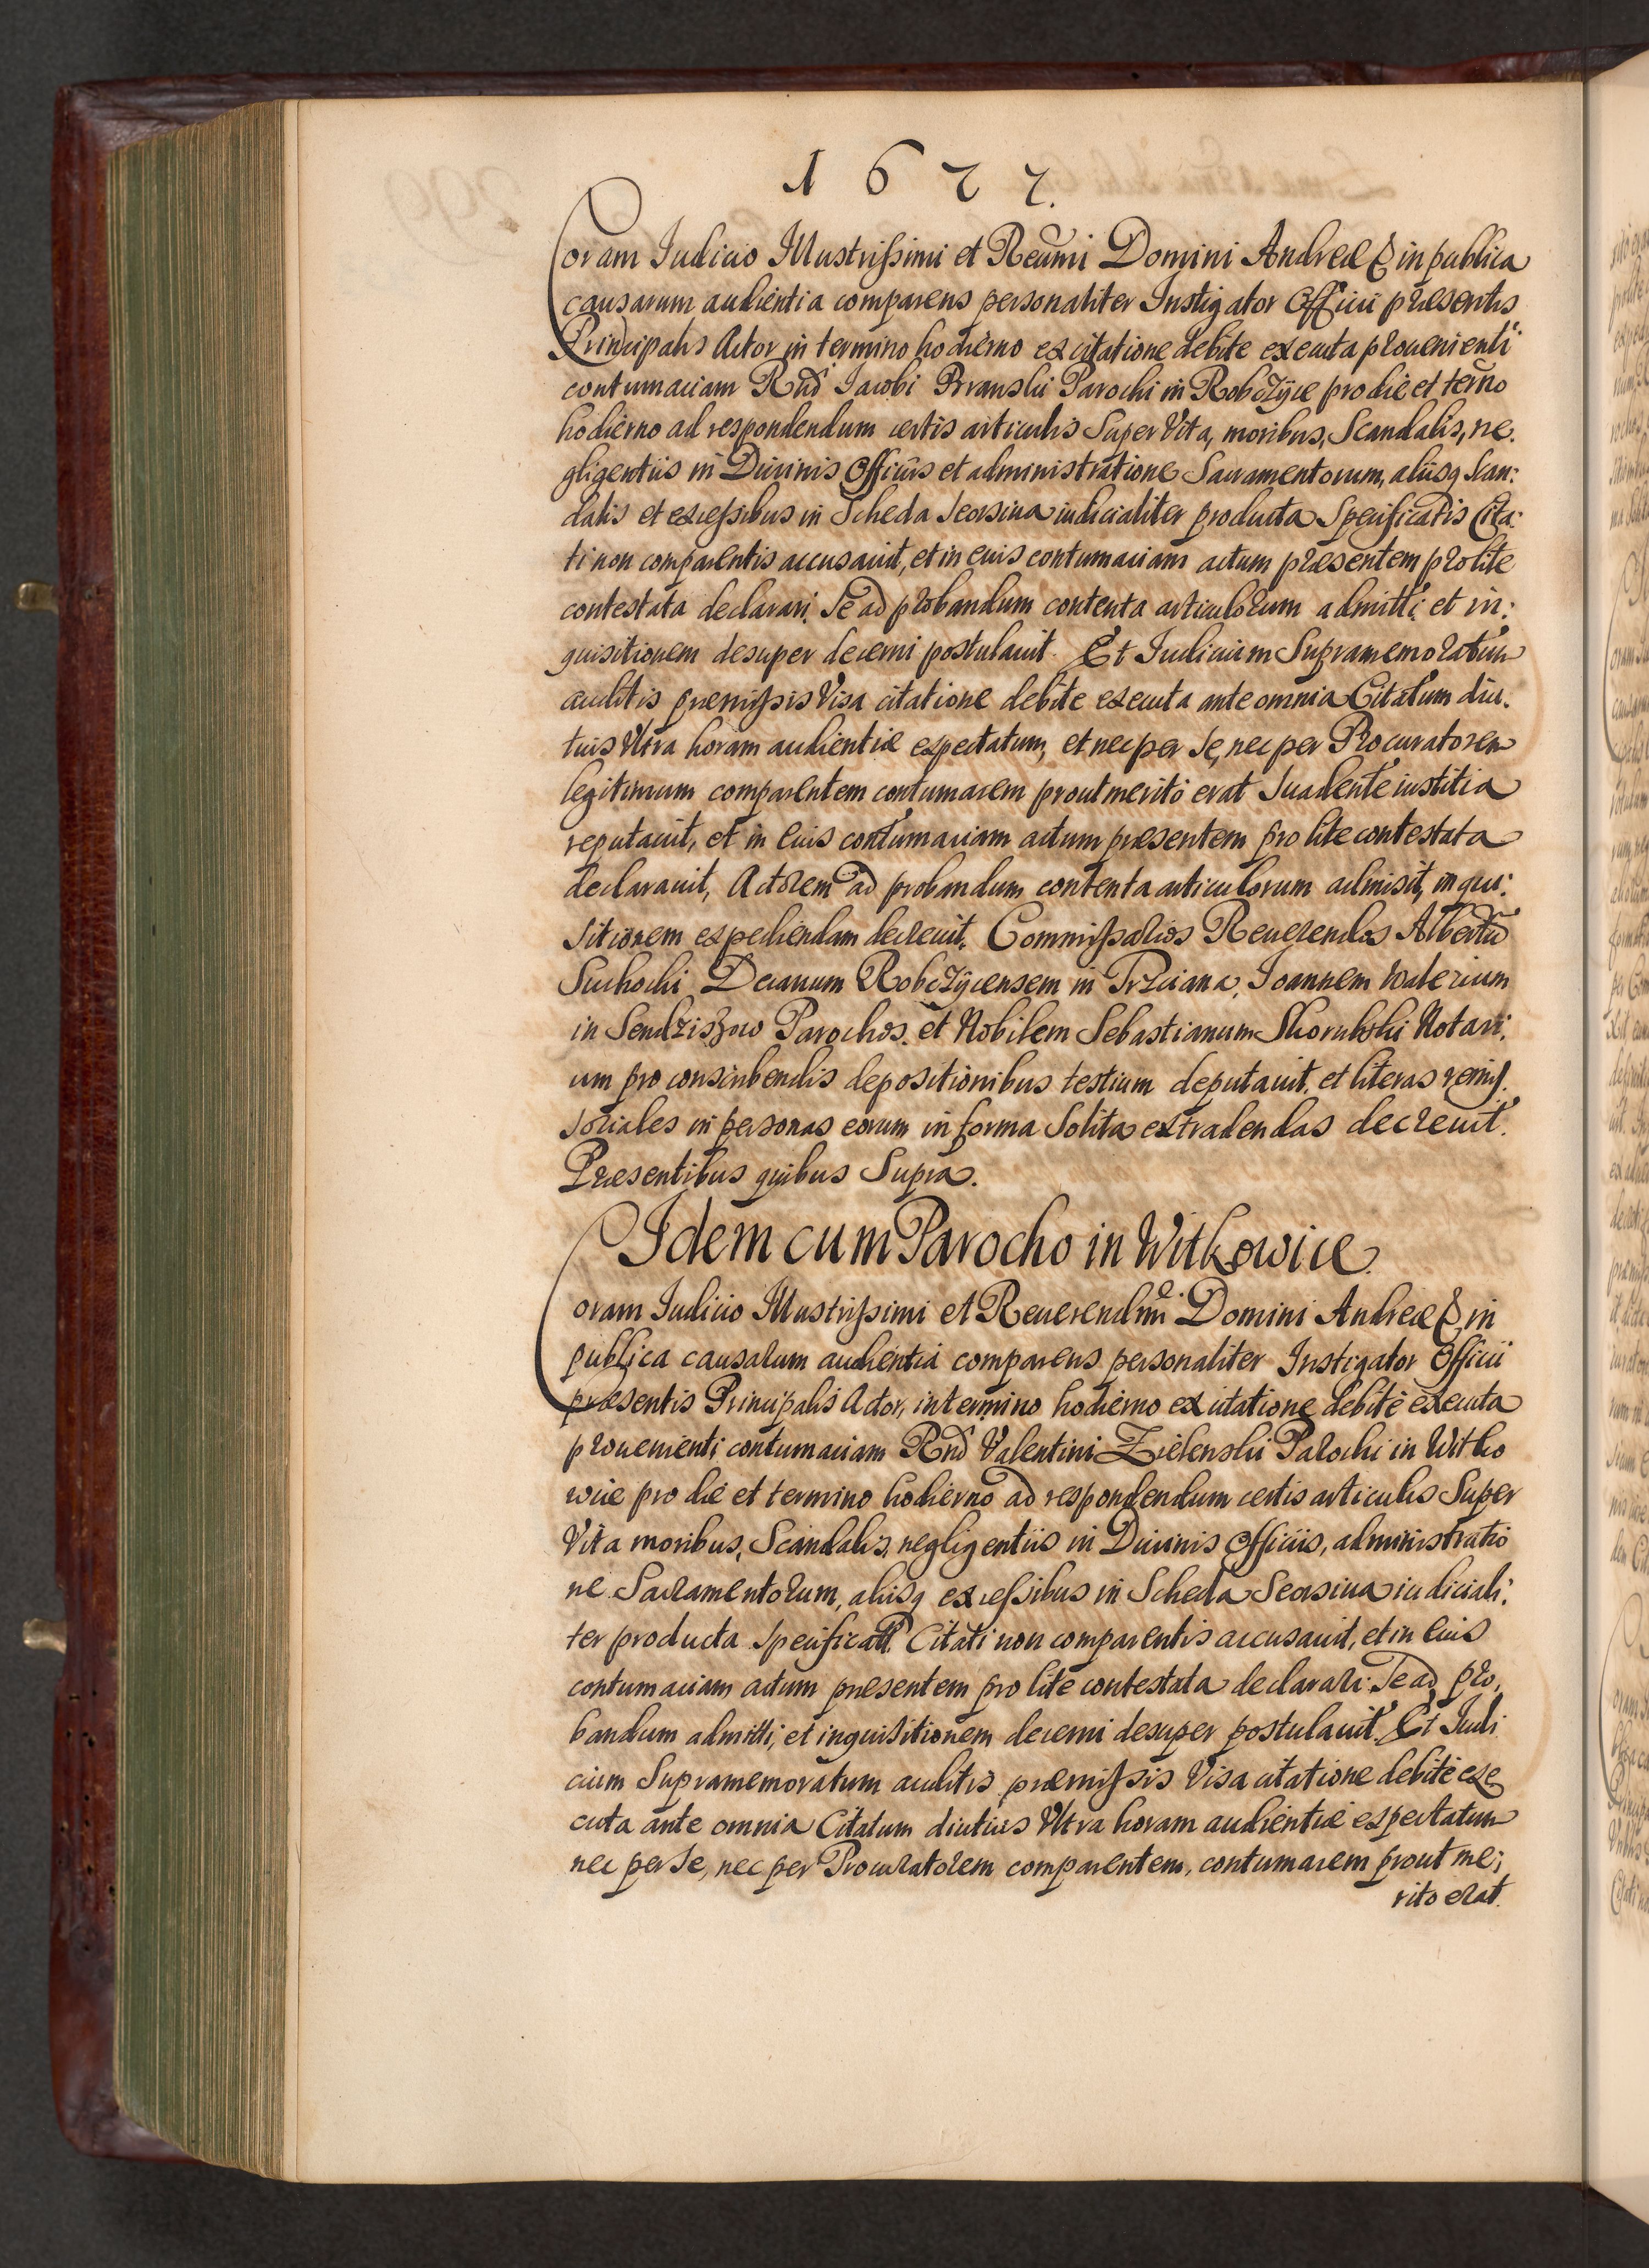 1677.
Coram Iudicio Illustrissimi et Reu̅mi Domini Andreæ & in publica
causarum audientia comparens personaliter Instigator Officii præsentis
Principalis Actor in termino hodierno ex citatione debite executa prouenienti
contumaciam Rnd̅i Iacobi Branski Parochi in Robczÿce pro die et ter̅no
hodierno ad respondendum certis articulis Super Vita, moribus, Scandalis, ne:
gligentiis in Diuinis Officiis et administratione Sacramentorum, aliisq Scan:
dalis et excessibus in Scheda Seorsiua iudicialiter producta Specificatis Cita:
ti non comparentis accusauit, et in eius contumaciam actum præsentem pro lite
contestata declarari. Se ad probandum contenta articulorum admitti et in:
quisitionem desuper decerni postulauit. Et Iudicium Supramemoratum
auditis præmissis Visa citatione debite executa ante omnia Citatum diu:
tius Vltra horam audientiæ expectatum, et nec per Se, nec per Procuratorem
legitimum comparentem contumacem prout merito erat Suadente iustitia
reputauit, et in eius contumaciam actum præsentem pro lite contestata
declarauit, Actorem ad probandum contenta articulorum admisit, inqui:
sitionem expediendam decreuit. Commissarios Reuerendos Albertu̅
Suchocki Decanum Robczÿcensem in Trzciana, Ioannem Walerium
in Sendziszow Parochos. et Nobilem Sebastianum Skorulski Notari:
um pro conscribendis depositionibus testium deputauit, et literas remis:
soriales in personas eorum in forma Solita extradendas decreuit.
Præsentibus quibus Supra.
Idem cum Parocho in Witkowice.
Coram Iudicio Illustrissimi et Reuerendmi Domini Andreæ & in
publica causarum audientia comparens personaliter Instigator Officii
præsentis Principalis Actor, in termino hodierno ex citatione debite executa
prouenienti contumaciam Rnd̅ Valentini Zielenski Parochi in Witko
wice pro die et termino hodierno ad respondendum certis articulis Super
Vita moribus, Scandalis, negligentiis in Diuinis Officiis, administratio
ne Sacramentorum, aliisq excessibus in Scheda Seorsiua iudiciali:
ter producta Specificatt Citati non comparentis accusauit, et in eius
contumaciam actum præsentem pro lite contestata declarari. Se ad pro:
bandum admitti, et inquisitionem decerni desuper postulauit. Et Iudi
cium Supramemoratum auditis præmissis Visa citatione debite exe
cuta ante omnia Citatum diutius Vltra horam audientiæ expectatum
nec per Se, nec per Procuratorem comparentem, contumacem prout me:
rito erat